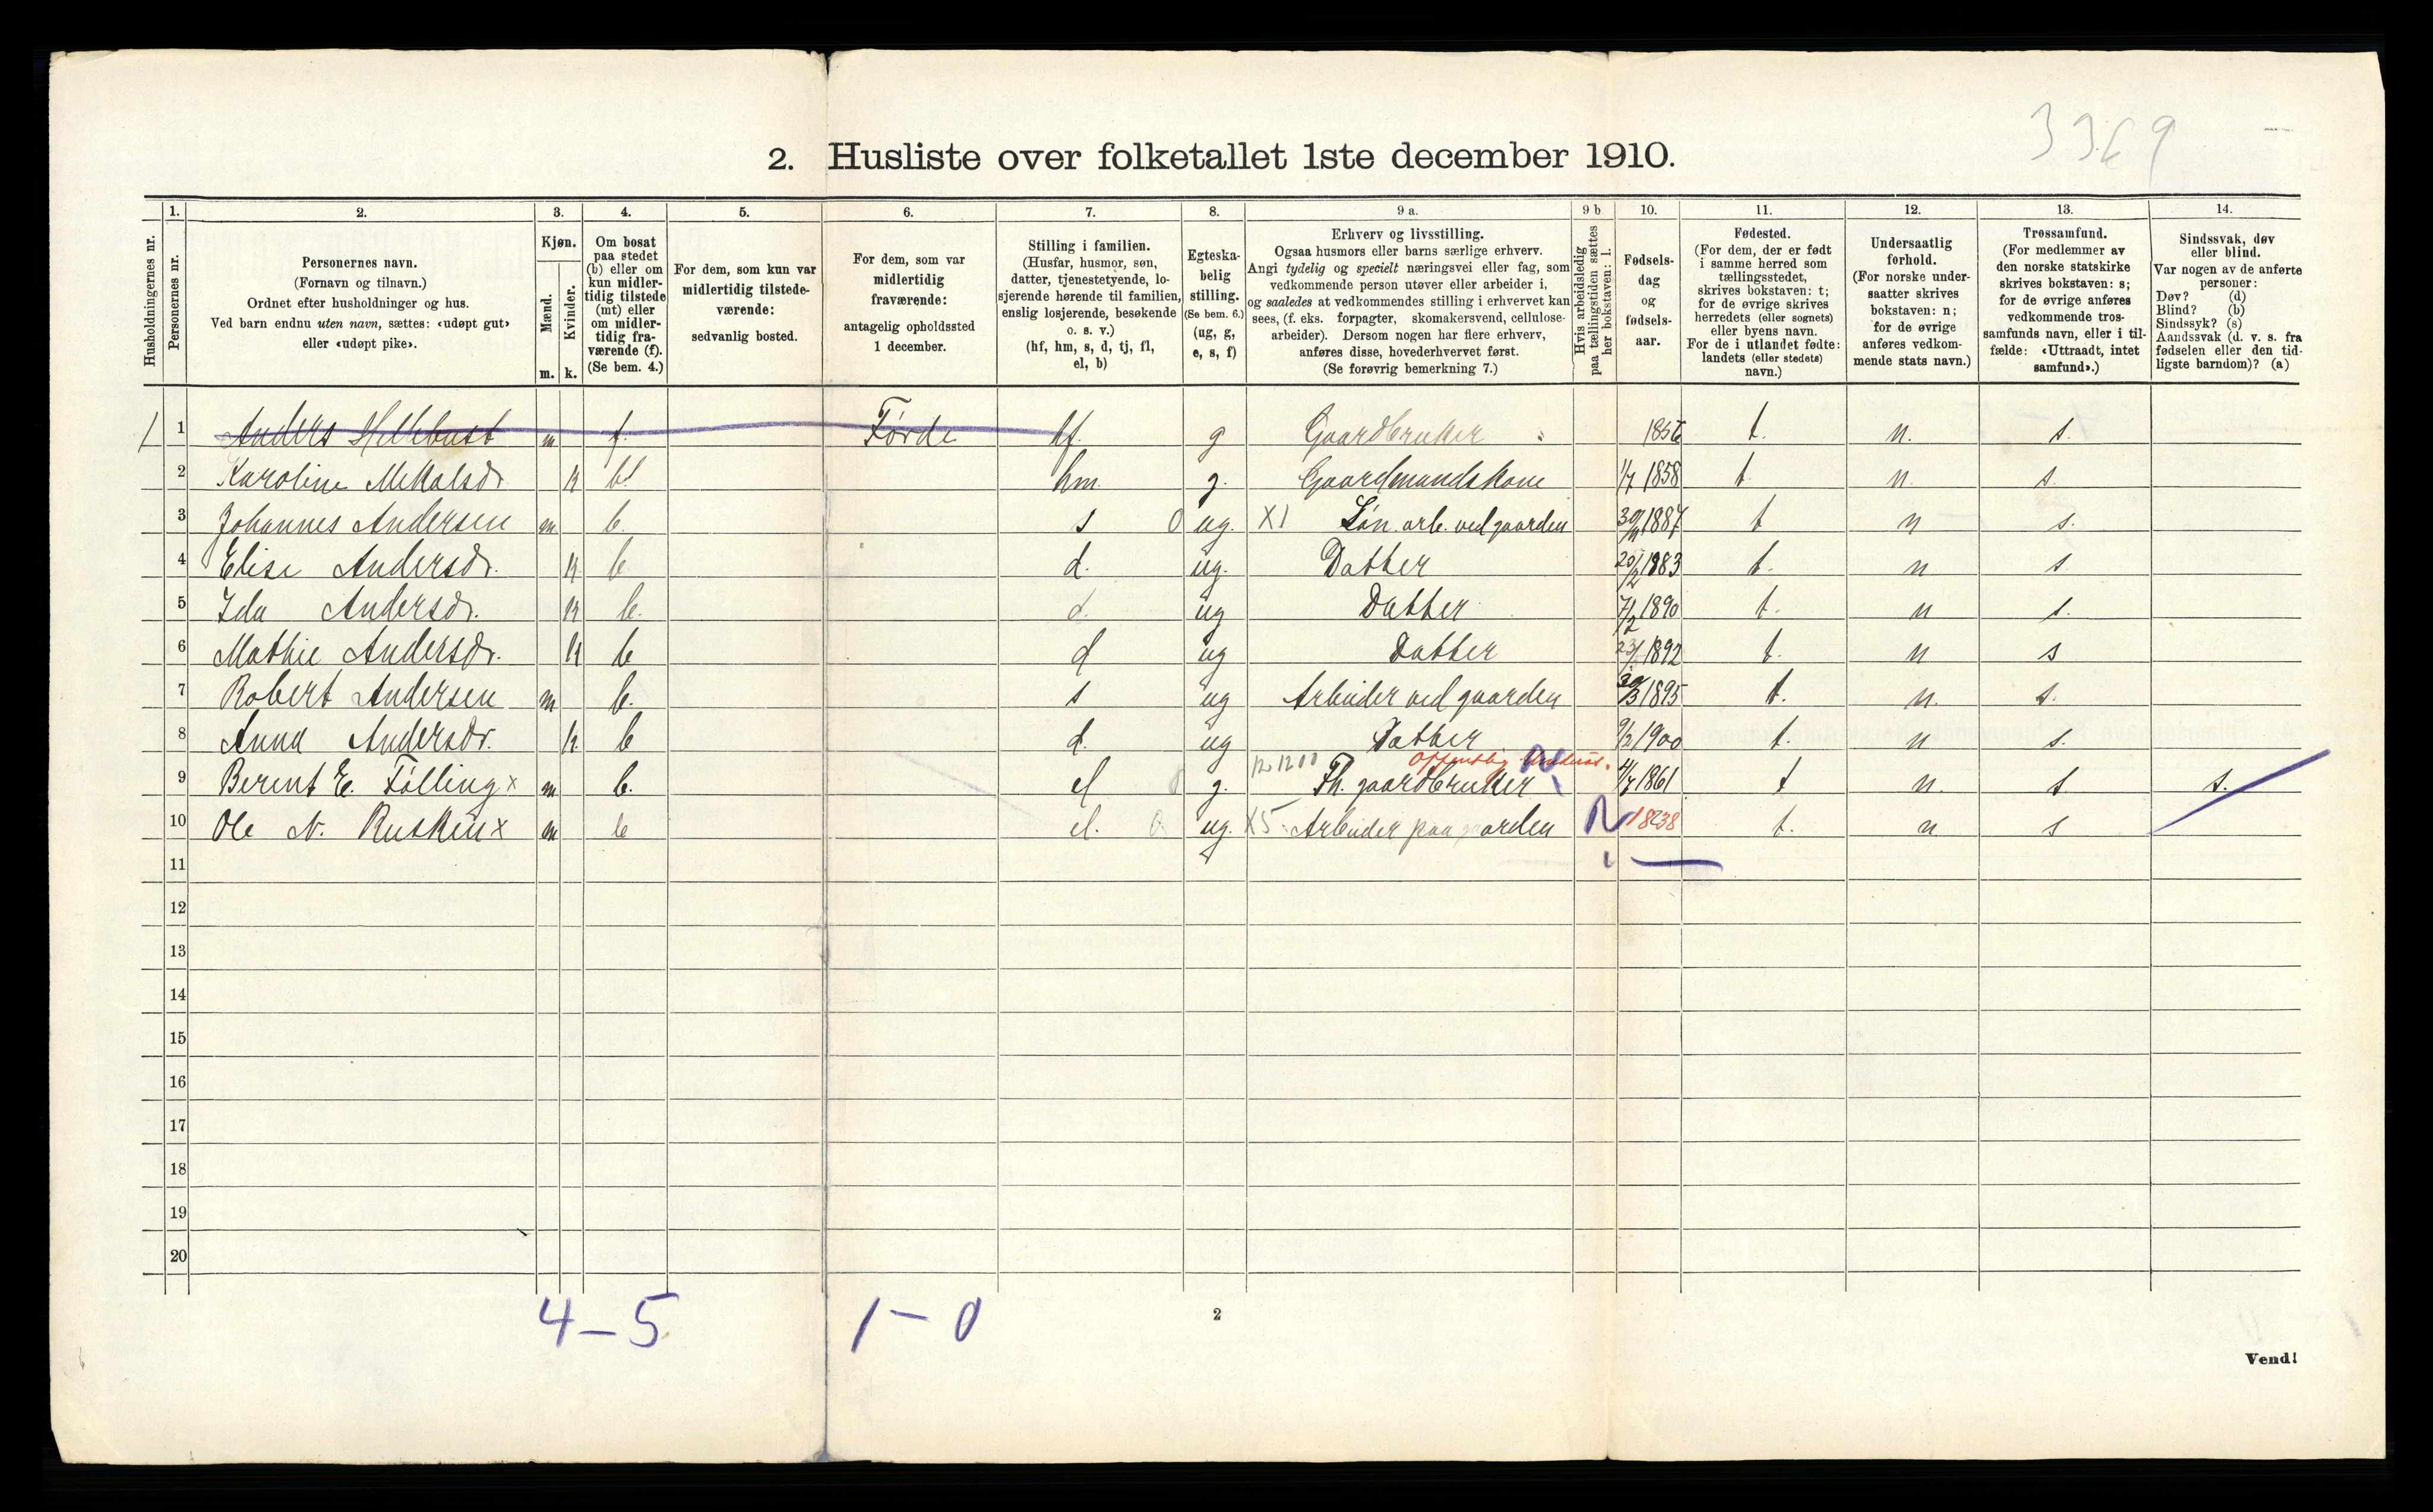 3369
2. Husliste over folketallet 1ste december 1910.
Husholdningernes nr.
1. Personernes nr.
2. Personernes navn. (Fornavn og tilnavn.) Ordnet efter husholdninger og hus. Ved barn endnu uten navn, sættes: «udøpt gut» eller «udøpt pike».
3. Kjøn. Mænd. m. Kvinder. k.
4. Om bosat paa stedet (b) eller om kun midlertidig tilstede (mt) eller om midlertidig fraværende (f). (Se bem. 4.)
5. For dem, som kun var midlertidig tilstedeværende: sedvanlig bosted.
6. For dem, som var midlertidig fraværende: antagelig opholdssted 1 december.
7. Stilling i familien. (Husfar, husmor, søn, datter, tjenestetyende, losjerende hørende til familien, enslig losjerende, besøkende o. s. v.) (hf, hm, s, d, tj, fl, el, b)
8. Egteskabelig stilling. (Se bem. 6.) (ug, g, e, s, f)
9 a. Erhverv og livsstilling. Ogsaa husmors eller barns særlige erhverv. Angi tydelig og specielt næringsvei eller fag, som vedkommende person utøver eller arbeider i, og saaledes at vedkommendes stilling i erhvervet kan sees, (f. eks. forpagter, skomakersvend, cellulosearbeider). Dersom nogen har flere erhverv, anføres disse, hovederhvervet først. (Se forøvrig bemerkning 7.)
9 b Hvis arbeidsledig paa tællingstiden sættes her bokstaven: l.
10. Fødselsdag og fødselsaar.
11. Fødested. (For dem, der er født i samme herred som tællingsstedet, skrives bokstaven: t; for de øvrige skrives herredets (eller sognets) eller byens navn. For de i utlandet fødte: landets (eller stedets) navn.)
12. Undersaatlig forhold. (For norske undersaatter skrives bokstaven: n; for de øvrige anføres vedkommende stats navn.)
13. Trossamfund. (For medlemmer av den norske statskirke skrives bokstaven: s; for de øvrige anføres vedkommende trossamfunds navn, eller i tilfælde: «Uttraadt, intet samfund».)
14. Sindssvak, døv eller blind. Var nogen av de anførte personer: Døv? (d) Blind? (b) Sindssyk? (s) Aandssvak (d. v. s. fra fødselen eller den tidligste barndom)? (a)
1 1 Anders Hellebust m f. Førde hf. g Gaardbruker 1856 t. n. s.
2 Karoline Mekalsdr. k b. hm. g. Gaardmandskone 1/7 1858 t. n. s.
3 Johannes Andersen m b. s 0 ug. X1 Søn. arb. ved gaarden 30/11 1887 t n s.
4 Elise Andersdr. k b d. ug. Datter 20/2 1883 t. n s
5 Ida Andersdr. k b. d. ug Datter 7/2 1890 t. n s.
6 Mathie Andersdr. k b d ug Datter 1892 t. n s
7 Robert Andersen m b. s ug Arbeider ved gaarden 30/3 1895 t. n. s.
8 Anna Andersdr. k. b d. ug Datter 9/2 1900 t. n s.
Offentlig
9 Berent E. Følling x m b. el g. Fh. gaardbruker 4/7 1861 t n. s s.
10 Ole N. Ruskin x m b el. 0 ug. X5 Arbeider paa gaarden 1838 t. n s
11
12
13
14
15
16
17
18
19
20
4 – 5 1 – 0
2
Vend!